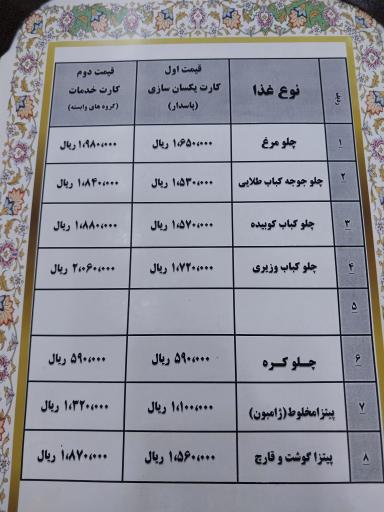 ردیف نوع غذا قیمت اول کارت یکسان سازی (پاسدار) قیمت دوم کارت خدمات (گروه های وابسته)
۱ چلو مرغ ۱،۶۵۰،۰۰۰ ریال ۱،۹۸۰،۰۰۰ ریال
۲ چلو جوجه کباب طلایی ۱،۵۳۰،۰۰۰ ریال ۱،۸۴۰،۰۰۰ ریال
۳ چلو کباب کوبیده ۱،۵۷۰،۰۰۰ ریال ۱،۸۸۰،۰۰۰ ریال
۴ چلو کباب وزیری ۱،۷۲۰،۰۰۰ ریال ۲،۰۶۰،۰۰۰ ریال
۵
۶ چلو کره ۵۹۰،۰۰۰ ریال ۵۹۰،۰۰۰ ریال
۷ پیتزا مخلوط (ژامبون) ۱،۱۰۰،۰۰۰ ریال ۱،۳۲۰،۰۰۰ ریال
۸ پیتزا گوشت و قارچ ۱،۵۶۰،۰۰۰ ریال ۱،۸۷۰،۰۰۰ ریال